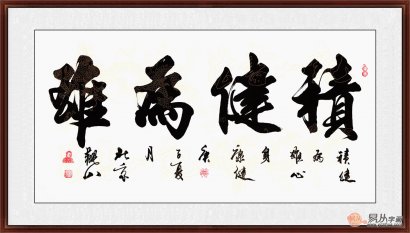 積健為雄
積健
為
雄心
身
康健
庚
子夏
月
北京
易从字画